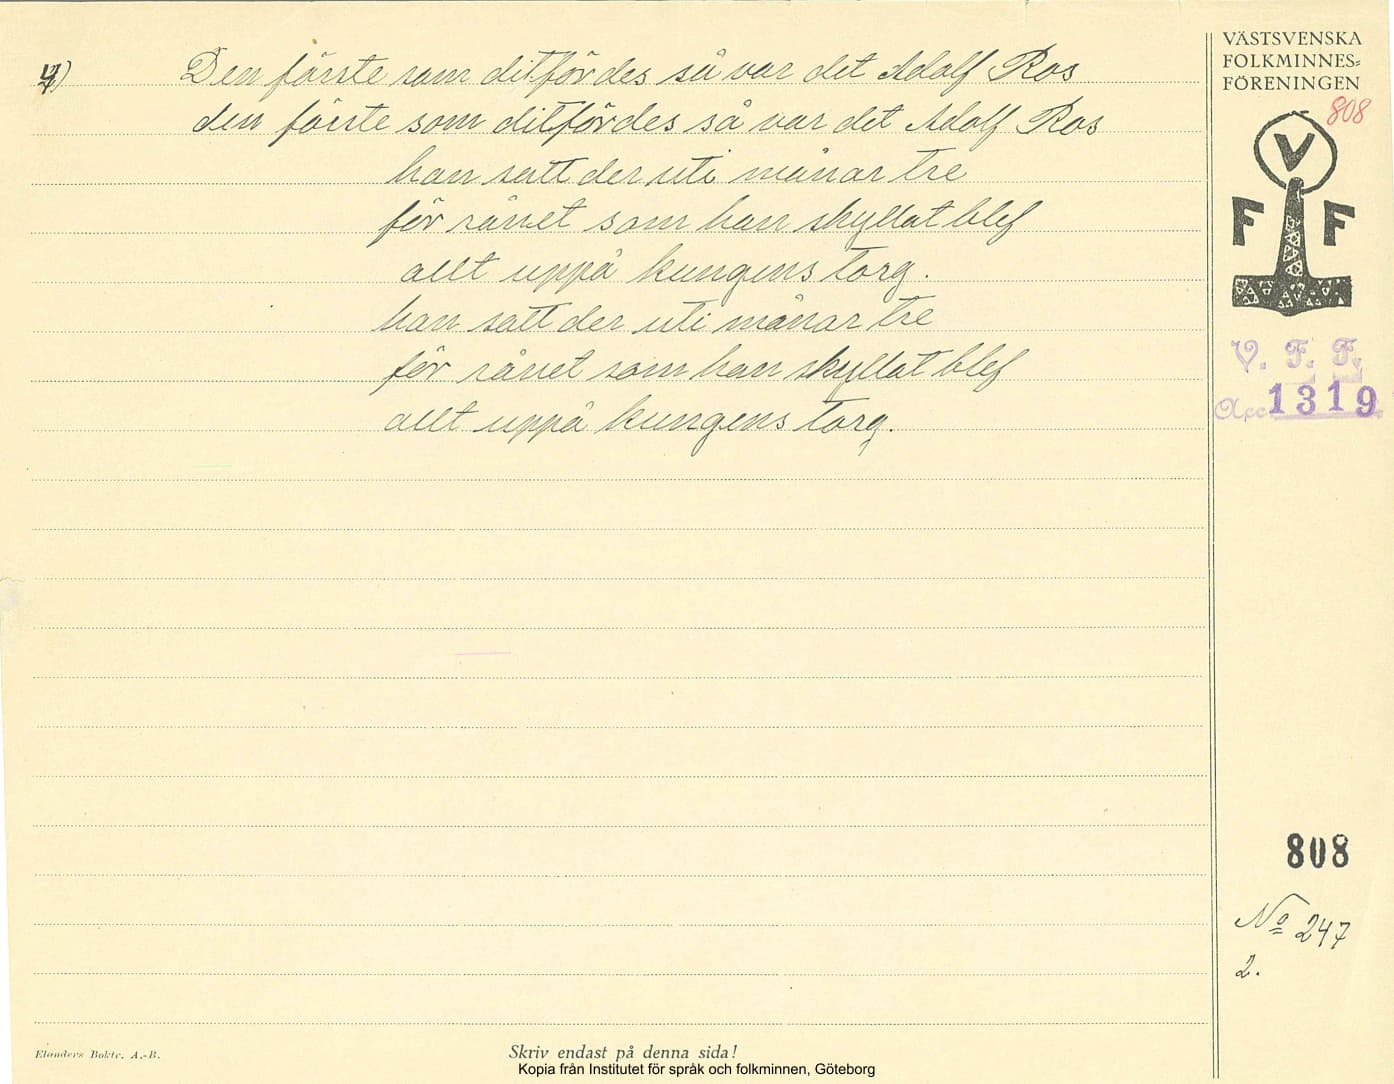 4) Den förste som ditfördes så var det Adolf Ros
den förste som ditfördes så var det Adolf Ros
han satt der uti månar tre
för rånet som han skyllat blef
allt uppå kungens torg.
han satt der uti månar tre
för rånet som han skyllat blef
allt uppå kungens torg.
VÄSTSVENSKA
FOLKMINNES=
FÖRENINGEN
808
V
F F
V. F. F.
Acc 1319
808
No 247
2.
Elanders Boktr. A.-B.
Skriv endast på denna sida!
Kopia från Institutet för språk och folkminnen, Göteborg